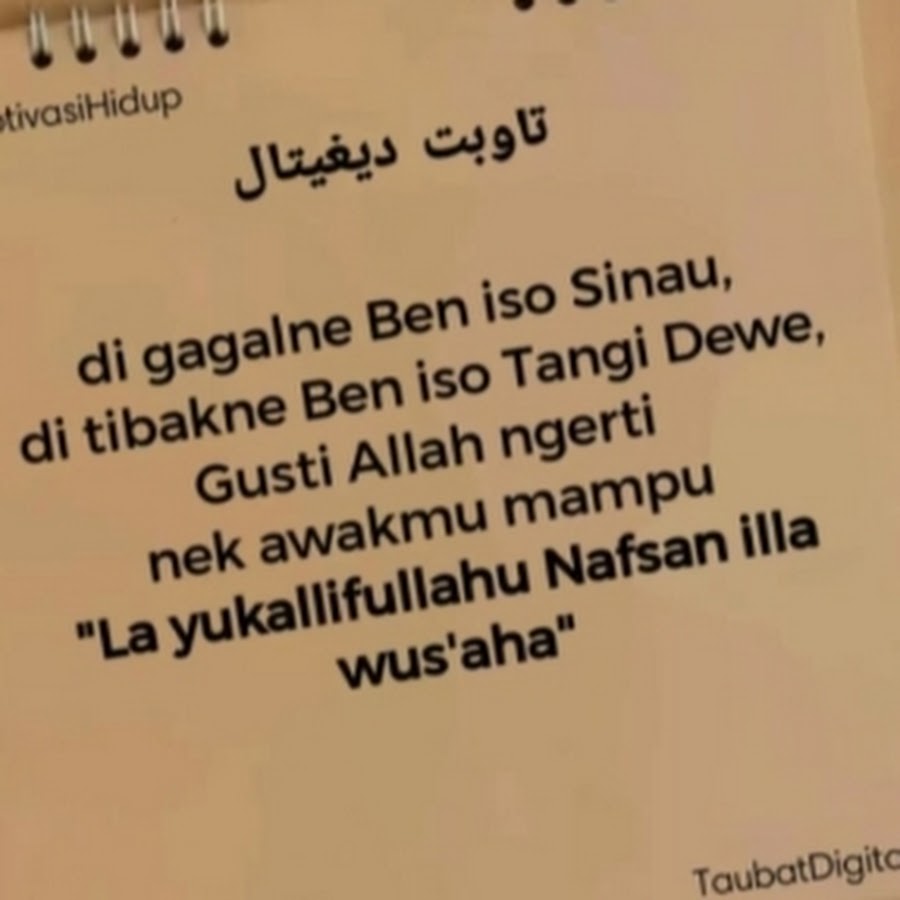 otivasiHidup
تاوبت ديغيتال
di gagalne Ben iso Sinau,
di tibakne Ben iso Tangi Dewe,
Gusti Allah ngerti
nek awakmu mampu
"La yukallifullahu Nafsan illa
wus'aha"
TaubatDigita